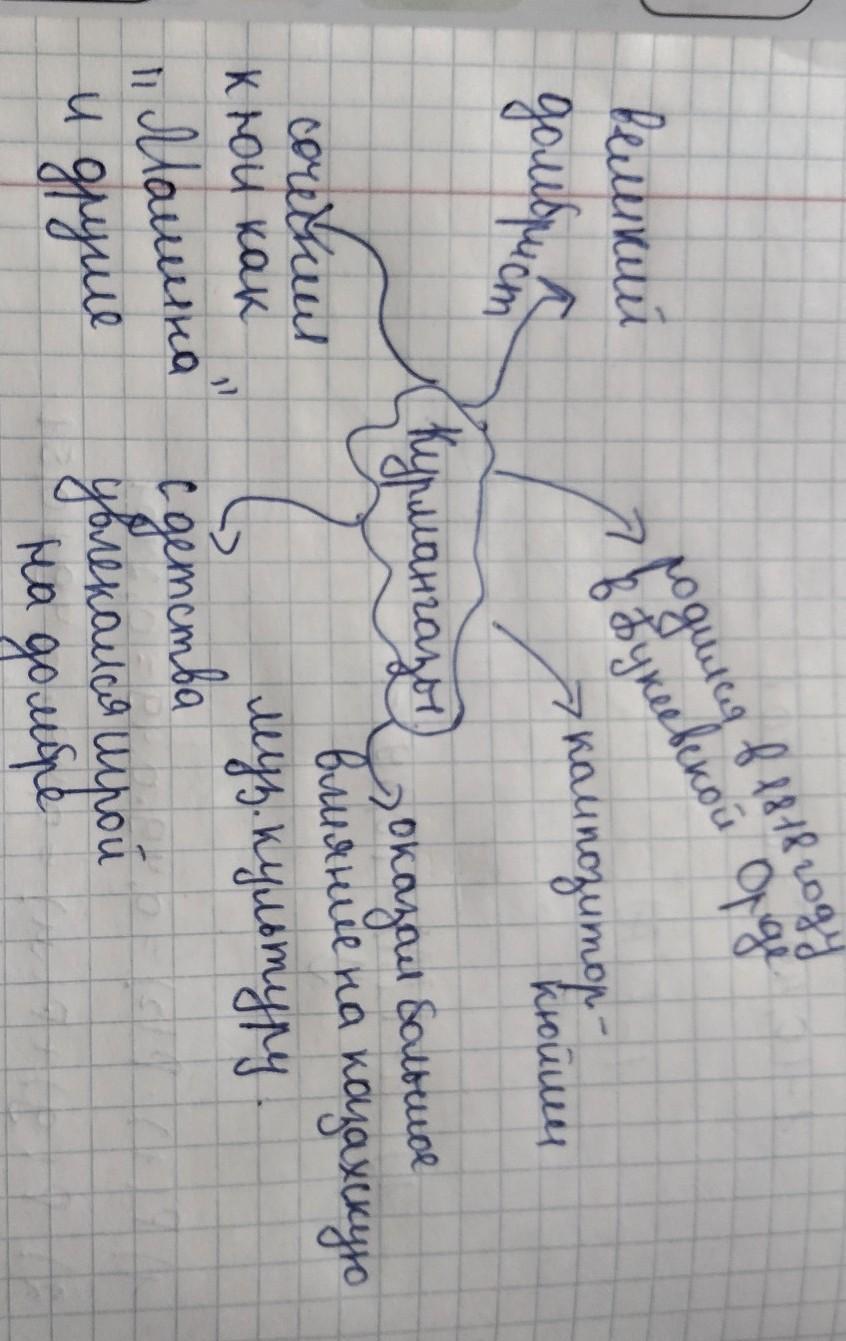 великий
домбрист
родился в 1818 году
в Букеевской Орде
композитор-
кюйши
Курмангазы
оказал большое
влияние на казахскую
муз. культуру.
сочеткил
кюи как
"Машина"
и другие
с детства
увлекался игрой
на домбре